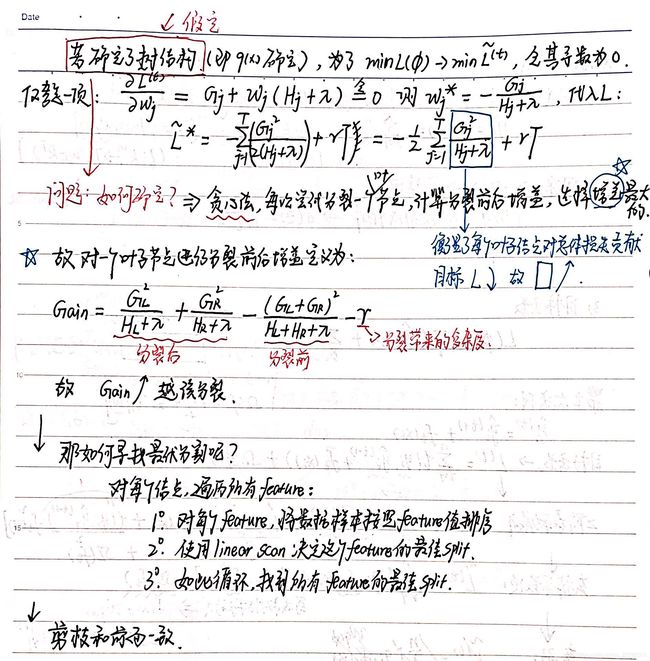 Date
↙ 假定
若确定了树结构 (即 q(x) 确定), 为了 min L(φ) → min L̃^(t), 令其导数为 0.
仅考虑一项: ∂L̃^(t)/∂wj = Gj + wj (Hj+λ) ≜ 0 则 wj* = - Gj/(Hj+λ), 代入 L:
L̃* = -∑_{j=1}^{T} (Gj²/2(Hj+λ)) + rT = -1/2 ∑_{j=1}^{T} Gj²/(Hj+λ) + rT
问题: 如何确定? ⇒ 贪心法, 每次尝试分裂一个叶节点, 计算分裂前后增益, 选择增益最大的.
衡量了每个叶子结点对总体损失贡献
目标 L↓ 故 □↑
☆ 故对一个叶子节点进行分裂前后增益定义为:
Gain = GL²/(HL+λ) + GR²/(HR+λ) - (GL+GR)²/(HL+HR+λ) - r
分裂后 分裂前 → 分裂带来的复杂度.
故 Gain↑ 越该分裂.
↓ 那如何寻找最优分割呢?
对每个结点, 遍历所有 feature:
1° 对每个 feature, 将数据样本按照 feature 值排序
2° 使用 linear scan 决定这个 feature 的最佳 split.
3° 如此循环, 找到所有 feature 的最佳 split.
↓ 剪枝和前面一致.